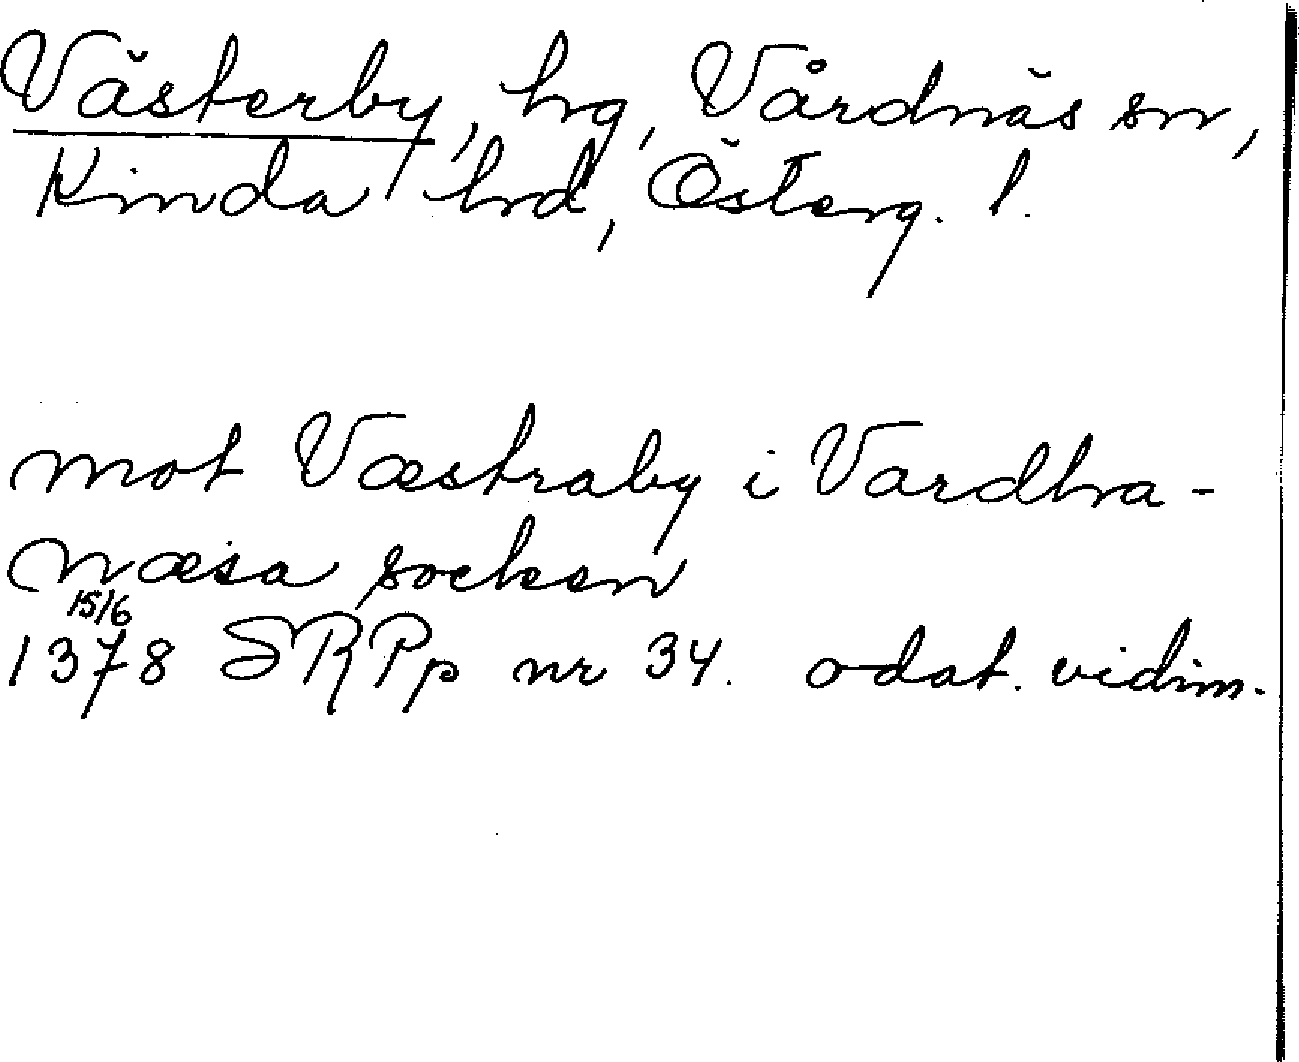 Västerby, hg, Vårdnäs sn,
Kinda hd, Österg. l.
mot Væstraby i Vardha-
næsa socken
15/6
1378 SRPp nr 34. odat. vidim.